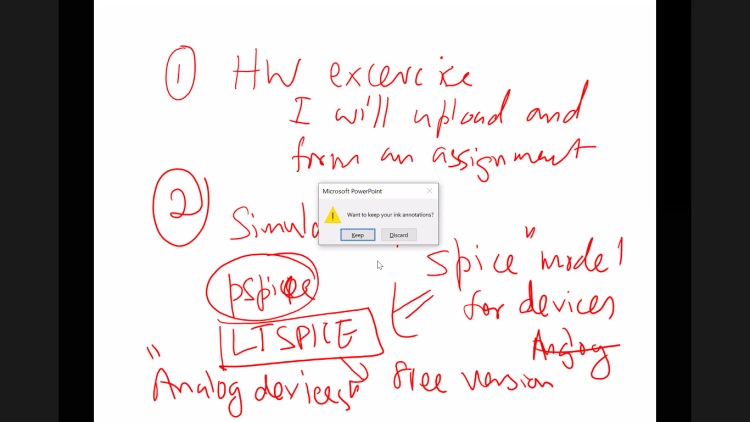 1 HW excercise
I will upload and
form an assignment
2
Microsoft PowerPoint
Want to keep your ink annotations?
Keep Discard
"Spice" model
pspice
for devices
LTSPICE
Analog
"Analog devices" free version